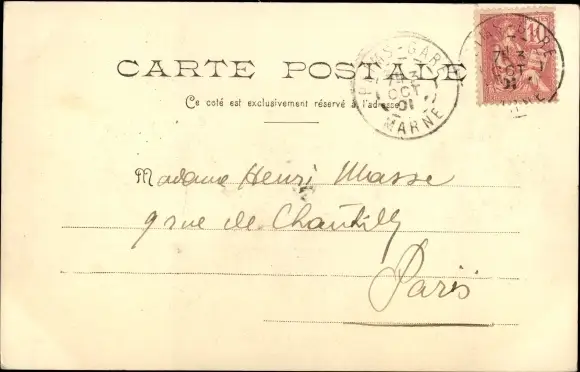 10
CARTE POSTALE
REIMS-GARE
3
OCT
01
MARNE
Ce coté est exclusivement réservé à l'adresse
Madame Henri Masse
9 rue de Chantilly
Paris